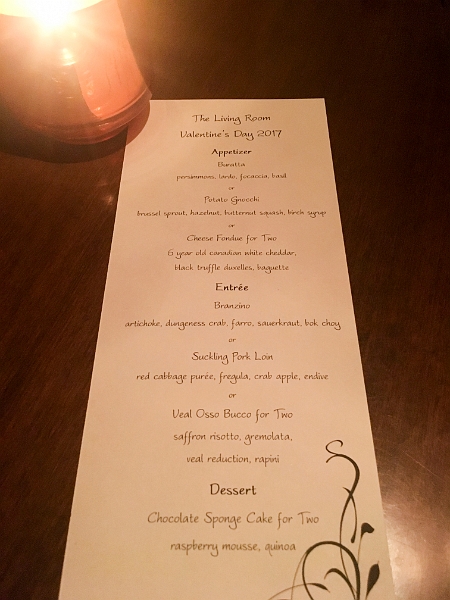 The Living Room
Valentine's Day 2017
Appetizer
Buratta
persimmons, lardo, focaccia, basil
or
Potato Gnocchi
brussel sprout, hazelnut, butternut squash, birch syrup
or
Cheese Fondue for Two
6 year old canadian white cheddar,
black truffle duxelles, baguette
Entrée
Branzino
artichoke, dungeness crab, farro, sauerkraut, bok choy
or
Suckling Pork Loin
red cabbage purée, fregula, crab apple, endive
or
Veal Osso Bucco for Two
saffron risotto, gremolata,
veal reduction, rapini
Dessert
Chocolate Sponge Cake for Two
raspberry mousse, quinoa